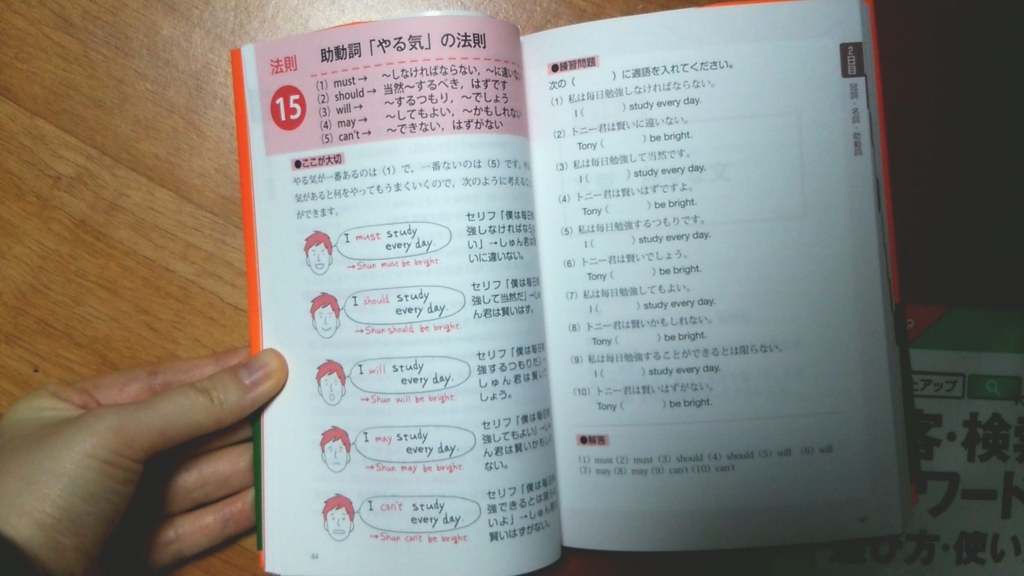 法則
15
助動詞「やる気」の法則
(1) must → ～しなければならない，～に違いない
(2) should → 当然～するべき，はずです
(3) will → ～するつもり，～でしょう
(4) may → ～してもよい，～かもしれない
(5) can't → ～できない，はずがない
●ここが大切
やる気が一番あるのは（1）で，一番ないのは（5）です。
気があると何をやってもうまくいくので，次のように考えるこ
ができます。
I must study
every day.
→Shun must be bright.
セリフ「僕は毎日
強しなければなら
い」→しゅん君は
いに違いない。
I should study
every day.
→Shun should be bright.
セリフ「僕は毎日
強して当然だ」→し
ん君は賢いはず。
I will study
every day.
→Shun will be bright.
セリフ「僕は毎日
強するつもりだ」
しゅん君は賢い
しょう。
I may study
every day.
→Shun may be bright.
セリフ「僕は毎日
強してもよい」→
ん君は賢いかも
ない。
I can't study
every day.
→Shun can't be bright.
セリフ「僕は毎日
強できるとは限
いよ」→しゅん君
賢いはずがない。
44
●練習問題
次の（　　）に適語を入れてください。
(1) 私は毎日勉強しなければならない。
I (　　) study every day.
(2) トニー君は賢いに違いない。
Tony (　　) be bright.
(3) 私は毎日勉強して当然です。
I (　　) study every day.
(4) トニー君は賢いはずですよ。
Tony (　　) be bright.
(5) 私は毎日勉強するつもりです。
I (　　) study every day.
(6) トニー君は賢いでしょう。
Tony (　　) be bright.
(7) 私は毎日勉強してもよい。
I (　　) study every day.
(8) トニー君は賢いかもしれない。
Tony (　　) be bright.
(9) 私は毎日勉強することができるとは限らない。
I (　　) study every day.
(10) トニー君は賢いはずがない。
Tony (　　) be bright.
●解答
(1) must (2) must (3) should (4) should (5) will (6) will
(7) may (8) may (9) can't (10) can't
2日目
冠詞・名詞・助動詞
アップ
客・検索
ワード
選び方・使い